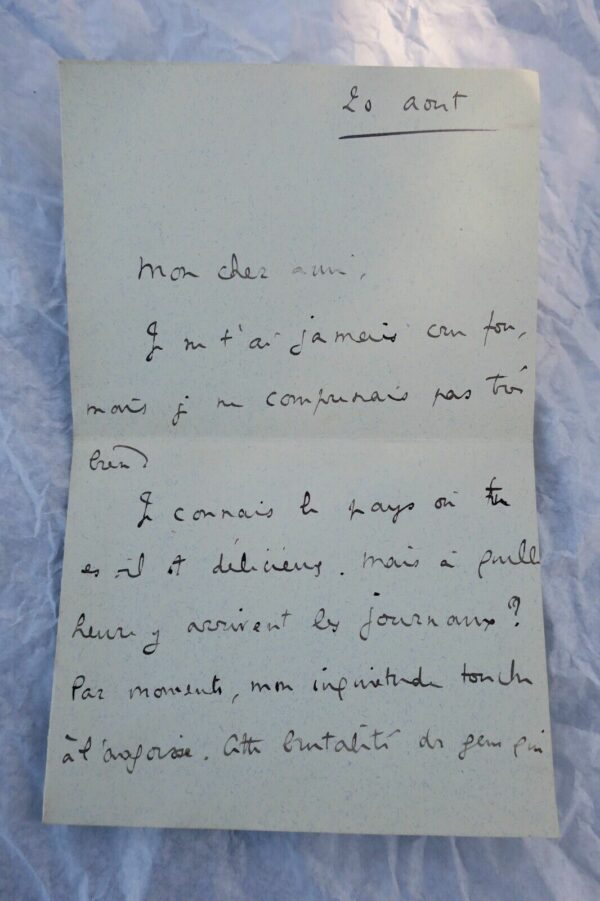 20 aout
Mon cher ami,
Je ne t'ai jamais cru fou,
mais je ne comprenais pas très
bien
Je connais le pays où tu
es il est délicieux. Mais à quelle
heure y arrivent les journaux ?
Par moments, mon inquiétude touche
à l'angoisse. Cette brutalité des gens qui